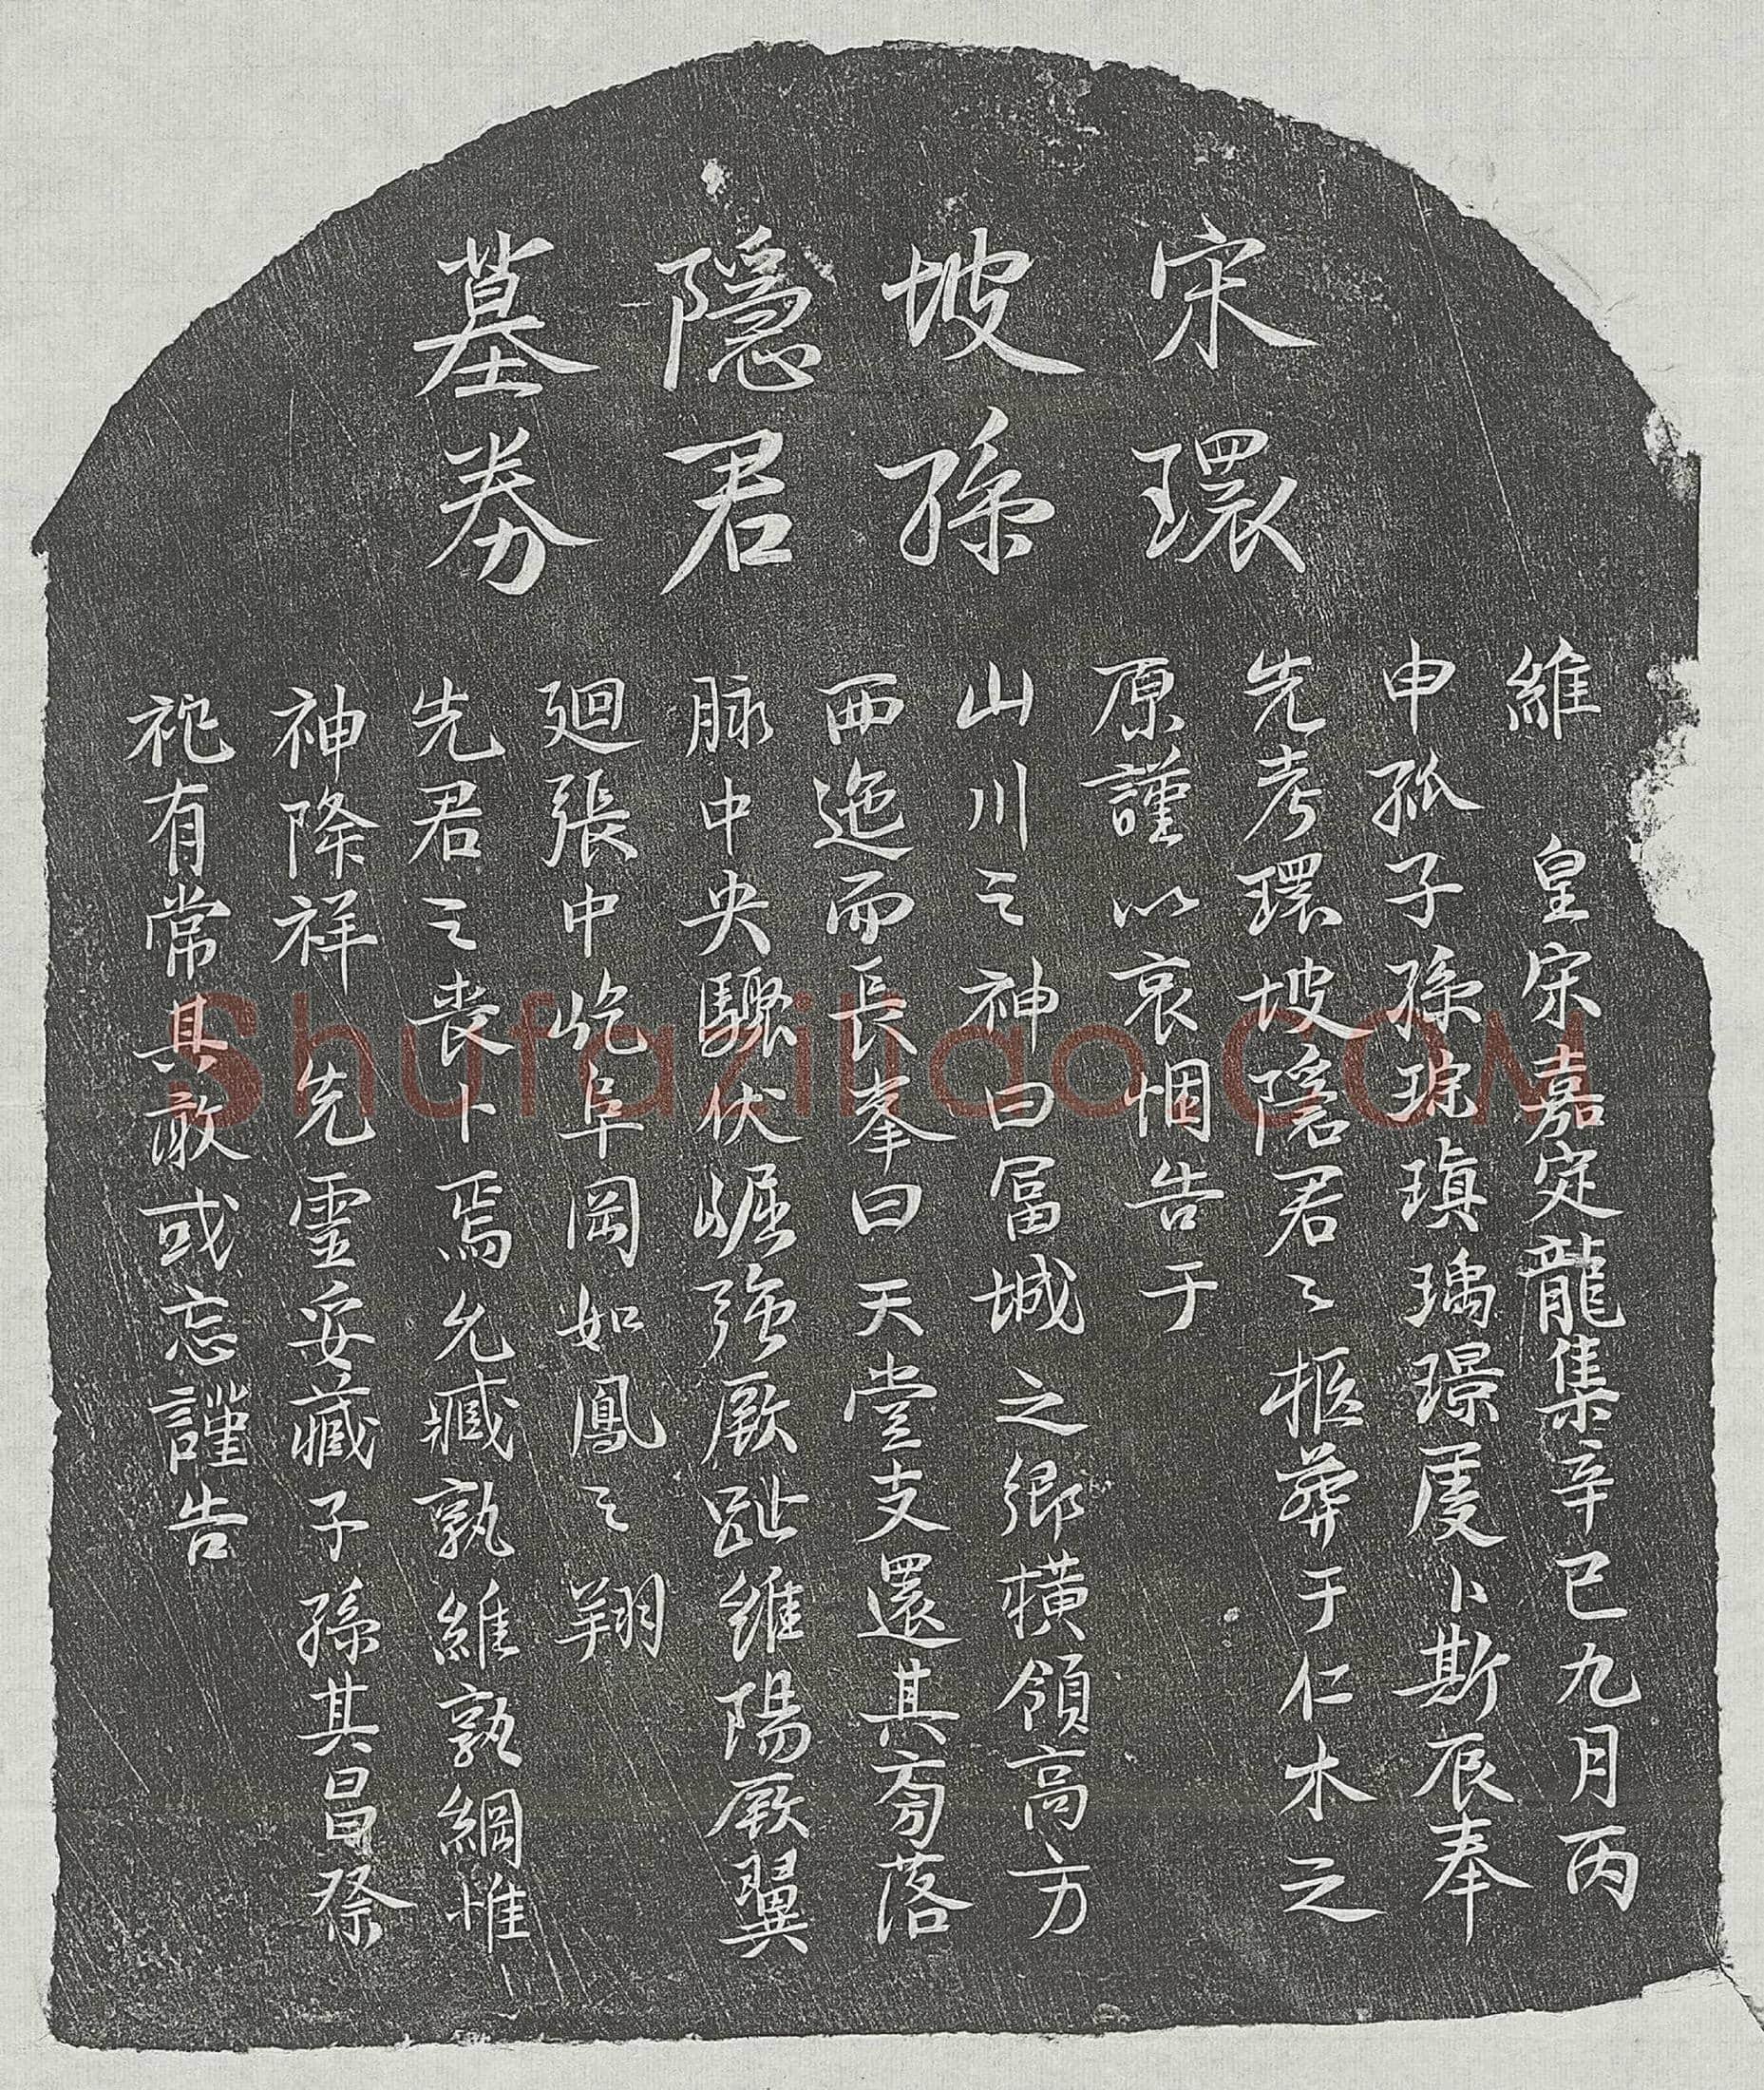 宋環
坡孫
隱君
墓券
維 皇宋嘉定龍集辛巳九月丙
申孤子孫琮瑱瑀璟虔卜斯辰奉
先考環坡隱君之柩葬于仁木之
原謹以哀悃告于
山川之神曰冨城之鄉橫領高方
西迤而長峯曰天堂支還其旁落
脉中央驟伏崛強厥趾維陽厥翼
廻張中屹阜岡如鳳之翔
先君之喪卜焉允臧孰維孰綱惟
神降祥 先霊妥藏子孫其昌祭
祀有常其敢或忘謹告
Shufaziliao.COM